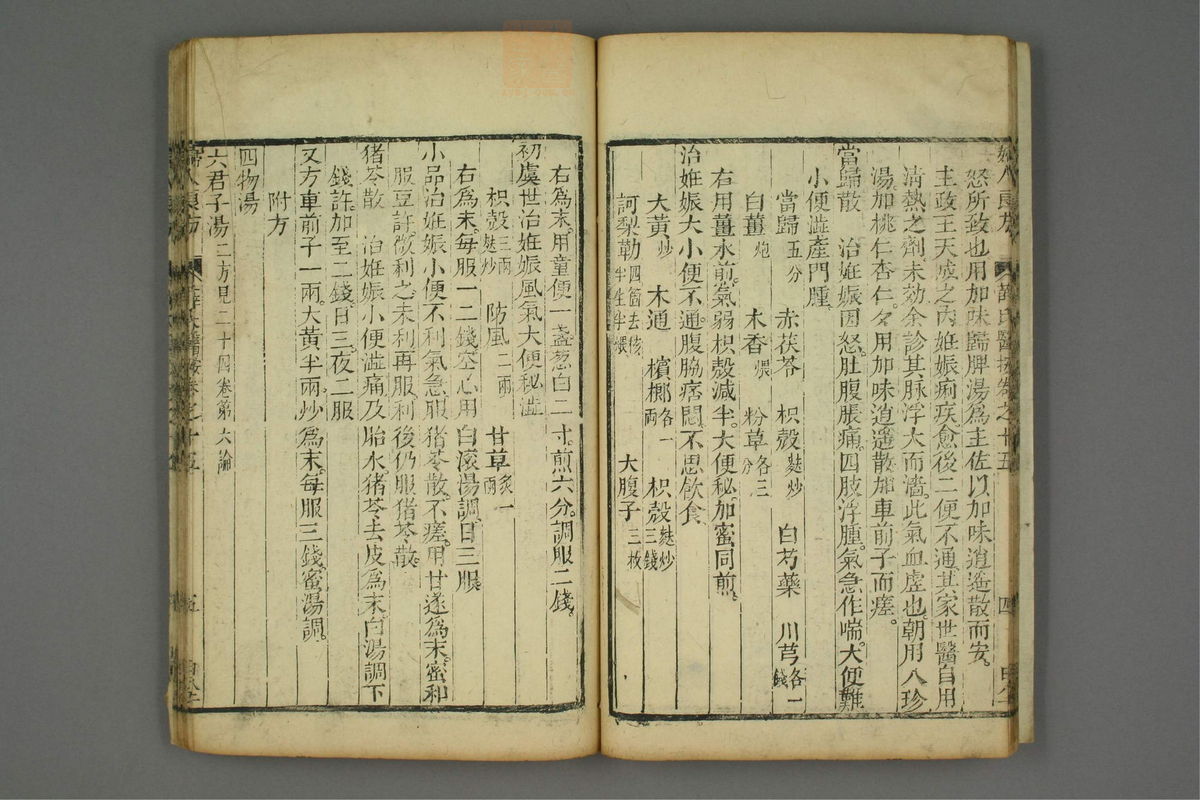 怒所致也用加味歸脾湯爲主佐以加味逍遥散而安
主政王天成之内姙娠痢疾愈後二便不通其家世醫自用
清熱之劑未効余診其脉浮大而濇此氣血虚也朝用八珍
湯加桃仁杏仁夕用加味逍遥散加車前子而瘥
當歸散　治姙娠因怒肚腹脹痛四肢浮腫氣急作喘大便難
小便澁産門腫
當歸五分　赤茯苓　枳殻麩炒　白芍藥　川芎各一錢
白薑炮　木香煨　粉草各三分
右用薑水煎氣弱枳殻減半大便秘加蜜同煎
治姙娠大小便不通腹脇痞悶不思飲食
大黄炒　木通　檳榔各一兩　枳殻麩炒三錢
訶梨勒四箇去核半生半煨　大腹子三枚
右爲末用童便一盞葱白二寸煎六分調服二錢
初虞世治姙娠風氣大便秘澁
枳殻三兩麩炒　防風二兩　甘草炙一兩
右爲末每服一二錢空心用白滚湯調日三服
小品治姙娠小便不利氣急服猪苓散不瘥用甘遂爲末蜜和
服豆許微利之未利再服利後仍服猪苓散
猪苓散　治姙娠小便澁痛及胎水猪苓去皮爲末白湯調下
錢許加至二錢日三夜二服
又方車前子一兩大黄半兩炒爲末每服三錢蜜湯調
附方
四物湯
六君子湯二方見二十四卷第六論